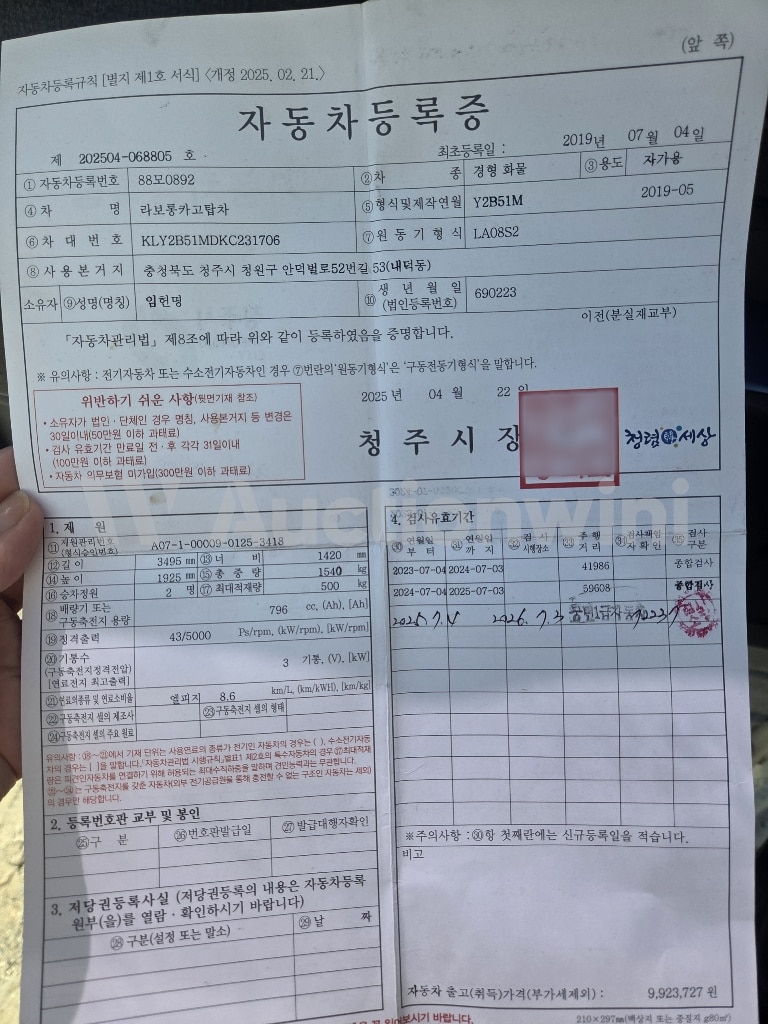 (앞 쪽)
자동차등록규칙 [별지 제1호 서식] <개정 2025. 02. 21.>
자동차등록증
제 202504-068805 호
최초등록일 : 2019년 07월 04일
①자동차등록번호 88모0892 ②차 종 경형 화물 ③용도 자가용
④차 명 라보롱카고탑차 ⑤형식및제작연월 Y2B51M 2019-05
⑥차 대 번 호 KLY2B51MDKC231706 ⑦원 동 기 형 식 LA08S2
⑧사 용 본 거 지 충청북도 청주시 청원구 안덕벌로52번길 53(내덕동)
소유자 ⑨성명(명칭) 임헌명 ⑩ 생 년 월 일 (법인등록번호) 690223
이전(분실재교부)
「자동차관리법」 제8조에 따라 위와 같이 등록하였음을 증명합니다.
※ 유의사항 : 전기자동차 또는 수소전기자동차인 경우 ⑦번란의 '원동기형식'은 '구동전동기형식'을 말합니다.
2025년 04월 22일
위반하기 쉬운 사항(뒷면기재 참조)
• 소유자가 법인 · 단체인 경우 명칭, 사용본거지 등 변경은
30일이내(50만원 이하 과태료)
• 검사 유효기간 만료일 전 · 후 각각 31일이내
(100만원 이하 과태료)
• 자동차 의무보험 미가입(300만원 이하 과태료)
청 주 시 장
청렴 세상
Auctionwini
1. 제 원
⑪제원관리번호 (형식승인번호) A07-1-00009-0125-3418
⑫길 이 3495 mm ⑬너 비 1420 mm
⑭높 이 1925 mm ⑮총 중 량 1540 kg
⑯승차정원 2 명 ⑰최대적재량 500 kg
⑱배기량 또는 구동축전지 용량 796 cc, (Ah), [Ah]
⑲정격출력 43/5000 Ps/rpm, (kW/rpm), [kW/rpm]
⑳기통수 (구동축전지정격전압) [연료전지 최고출력] 3 기통, (V), [kW]
㉑연료의종류 및 연료소비율 엘피지 8.6 km/L, (km/kWH), [km/kg]
㉒구동축전지 셀의 제조사 ㉓구동축전지 셀의 형태
㉔구동축전지 셀의 주요 원료
2. 등록번호판 교부 및 봉인
㉕구 분 ㉖번호판발급일 ㉗발급대행자확인
3. 저당권등록사실 (저당권등록의 내용은 자동차등록
원부(을)를 열람 · 확인하시기 바랍니다)
㉘구분(설정 또는 말소) ㉙날 짜
4. 검사유효기간
㉚연월일 부터 ㉛연월일 까지 ㉜검 사 시행장소 ㉝주행 거리 ㉞검사책임 자확인 ㉟검사 구분
2023-07-04 2024-07-03 41986 종합검사
2024-07-04 2025-07-03 59608 종합검사
2025. 7. 4 2026. 7. 3
※주의사항 : ㉚항 첫째란에는 신규등록일을 적습니다.
비고
자동차 출고(취득)가격(부가세제외) : 9,923,727 원
210×297㎜(백상지 또는 중질지 g80㎡)